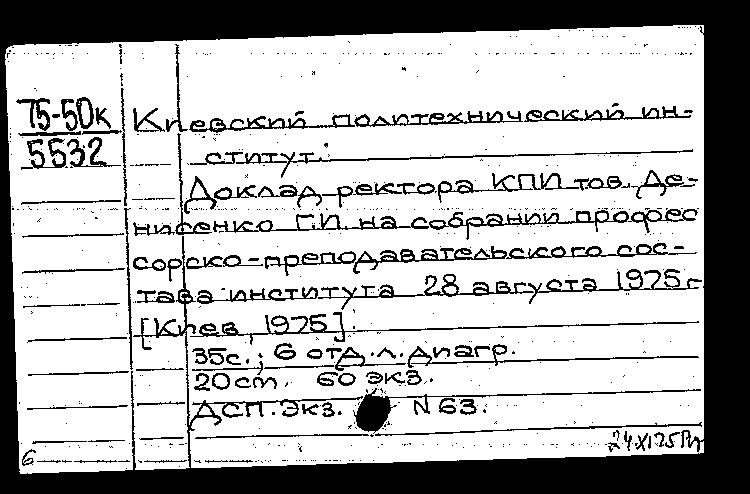 75-50к
5532
Киевский политехнический ин-
ститут.
Доклад ректора КПИ тов. Де-
нисенко Г.И. на собрании профес
сорско-преподавательского сос-
тава института 28 августа 1975 г
[Киев, 1975].
35с.; 6 отд.л.диагр.
20 cm. 60 экз.
ДСП. Экз. N 63.
24 XI 75
6